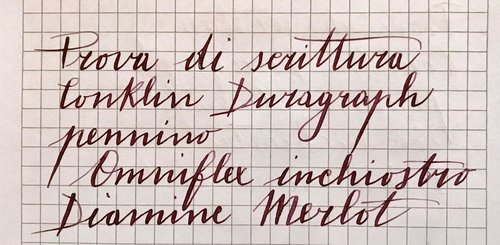 Prova di scrittura
Conklin Duragraph
pennino
Omniflex inchiostro
Diamine Merlot